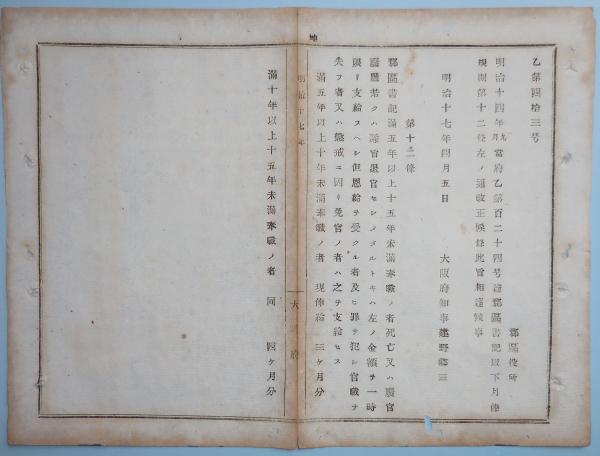 乙第四拾三号
郡區役所
明治十四年九月當府乙第百二十四号達郡區書記以下月俸
規則第十二條左ノ通改正候條此旨相達候事
明治十七年四月五日
大阪府知事建野郷三
第十二條
郡區書記滿五年以上十五年未滿奉職ノ者死亡又ハ廢官
廢廳若クハ諭官退官セシメタルトキハ左ノ金額ヲ一時
限リ支給スヘシ但恩給ヲ受クル者及ヒ罪ヲ犯シ官職ヲ
失フ者又ハ懲戒ニ因リ免官ノ者ハ之ヲ支給セス
滿五年以上十年未滿奉職ノ者 現俸給 三ケ月分
明治十七年
大 府
滿十年以上十五年未滿奉職ノ者 同 四ケ月分